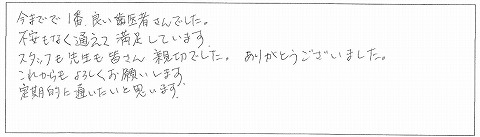 今までで1番、良い歯医者さんでした。
不安もなく通えて満足しています。
スタッフも先生も皆さん親切でした。ありがとうございました。
これからもよろしくお願いします。
定期的に通いたいと思います。